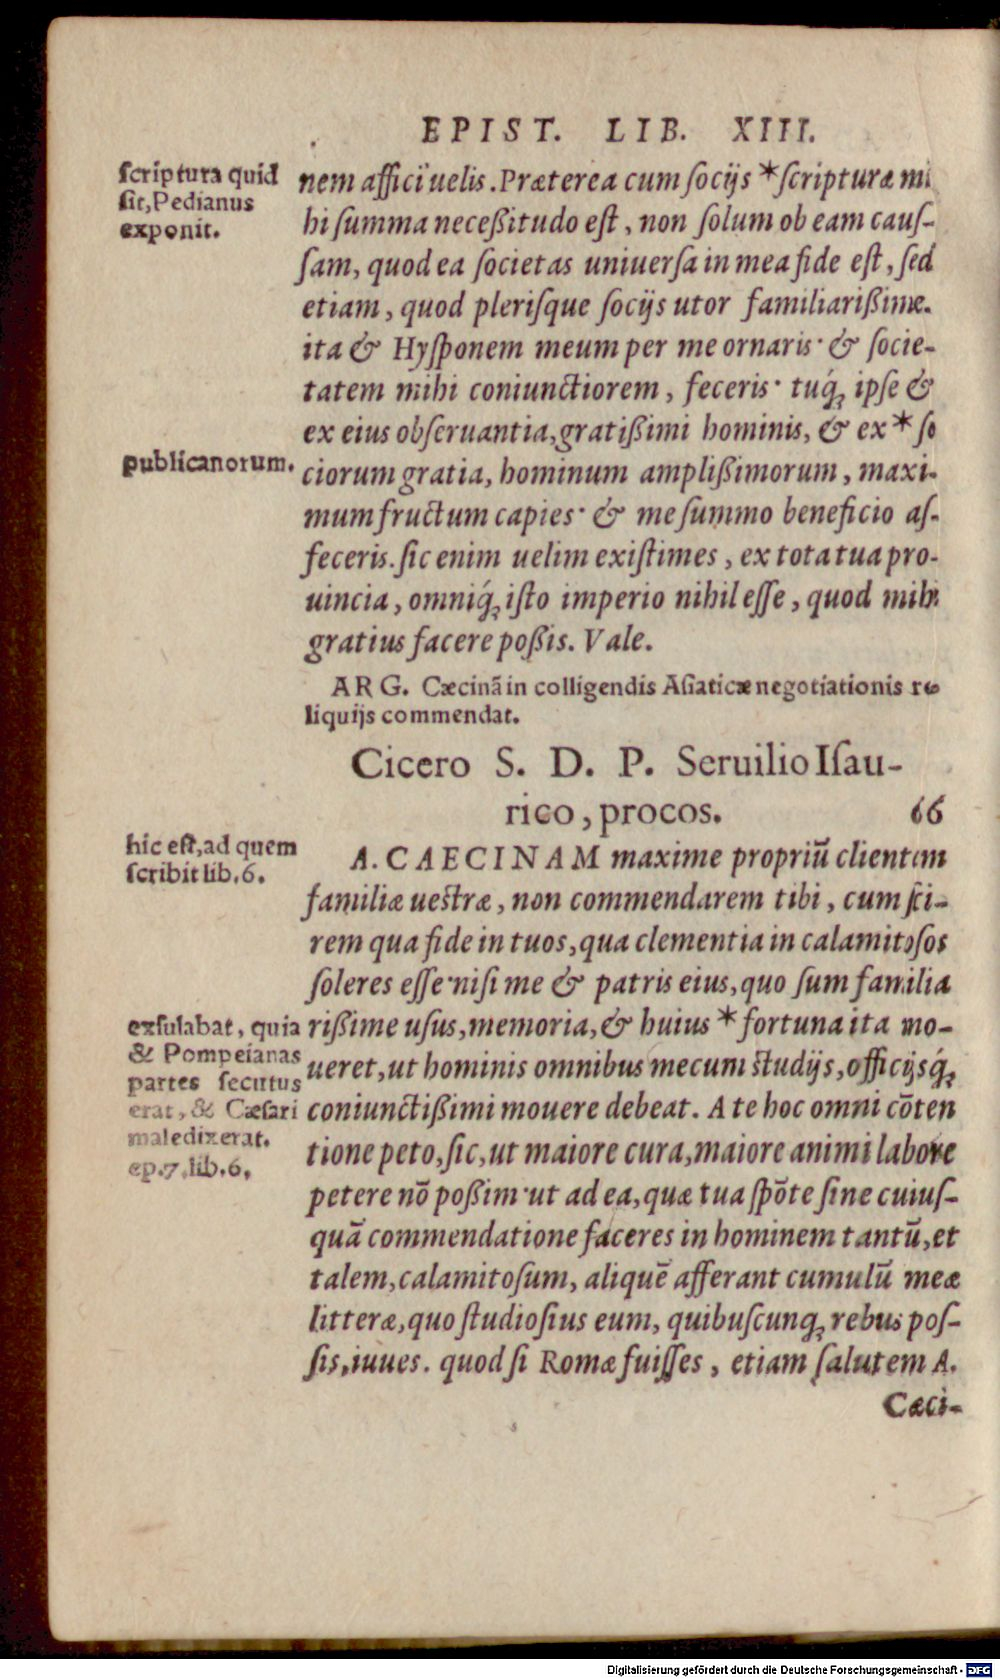 EPIST. LIB. XIII.
ſcriptura quid
ſit, Pedianus
exponit.
nem affici uelis. Præterea cum ſocijs *ſcripturæ mi
hi ſumma neceßitudo eſt, non ſolum ob eam cauſ-
ſam, quod ea ſocietas uniuerſa in mea fide eſt, ſed
etiam, quod pleriſque ſocijs utor familiarißime.
ita & Hyſponem meum per me ornaris· & ſocie-
tatem mihi coniunctiorem, feceris· tuq́; ipſe &
ex eius obſeruantia, gratißimi hominis, & ex *ſo
publicanorum.
ciorum gratia, hominum amplißimorum, maxi-
mum fructum capies· & me ſummo beneficio af-
feceris. ſic enim uelim exiſtimes, ex tota tua pro-
uincia, omniq́; iſto imperio nihil eſſe, quod mihi
gratius facere poßis. Vale.
ARG. Cæcinā in colligendis Aſiaticæ negotiationis re
liquijs commendat.
Cicero S. D. P. Seruilio Iſau-
rico, procos. 66
hic eſt, ad quem
ſcribit lib. 6.
A. CAECINAM maxime propriū clientem
familiæ ueſtræ, non commendarem tibi, cum ſci-
rem qua fide in tuos, qua clementia in calamitoſos
ſoleres eſſe· niſi me & patris eius, quo ſum familia
exſulabat, quia
& Pompeianas
partes ſecutus
erat, & Cæſari
maledixerat.
ep. 7. lib. 6.
rißime uſus, memoria, & huius *fortuna ita mo-
ueret, ut hominis omnibus mecum ſtudijs, officijsq́;
coniunctißimi mouere debeat. A te hoc omni cōten
tione peto, ſic, ut maiore cura, maiore animi labore
petere nō poßim· ut ad ea, quæ tua ſpōte ſine cuiuſ-
quā commendatione faceres in hominem tantū, et
talem, calamitoſum, aliquē afferant cumulū meæ
litteræ, quo ſtudioſius eum, quibuſcunq; rebus poſ-
ſis, iuues. quod ſi Romæ fuiſſes, etiam ſalutem A.
Cæci-
Digitalisierung gefördert durch die Deutsche Forschungsgemeinschaft - DFG